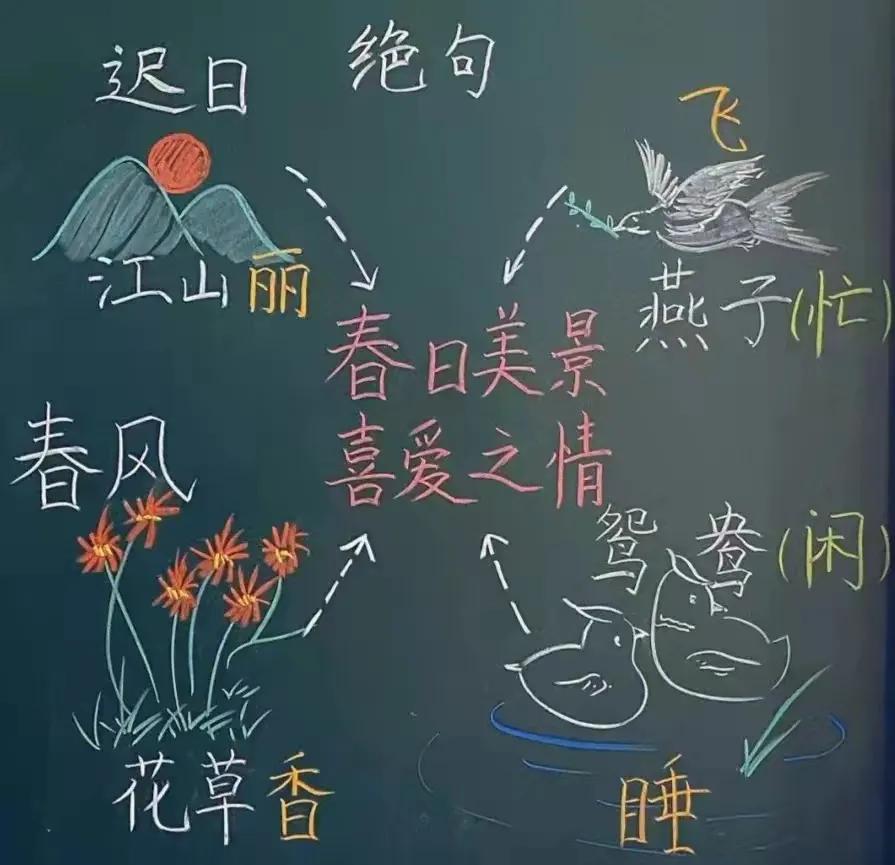 绝句
迟日
江山丽
飞
燕子(忙)
春日美景
喜爱之情
春风
花草香
鸳鸯(闲)
睡